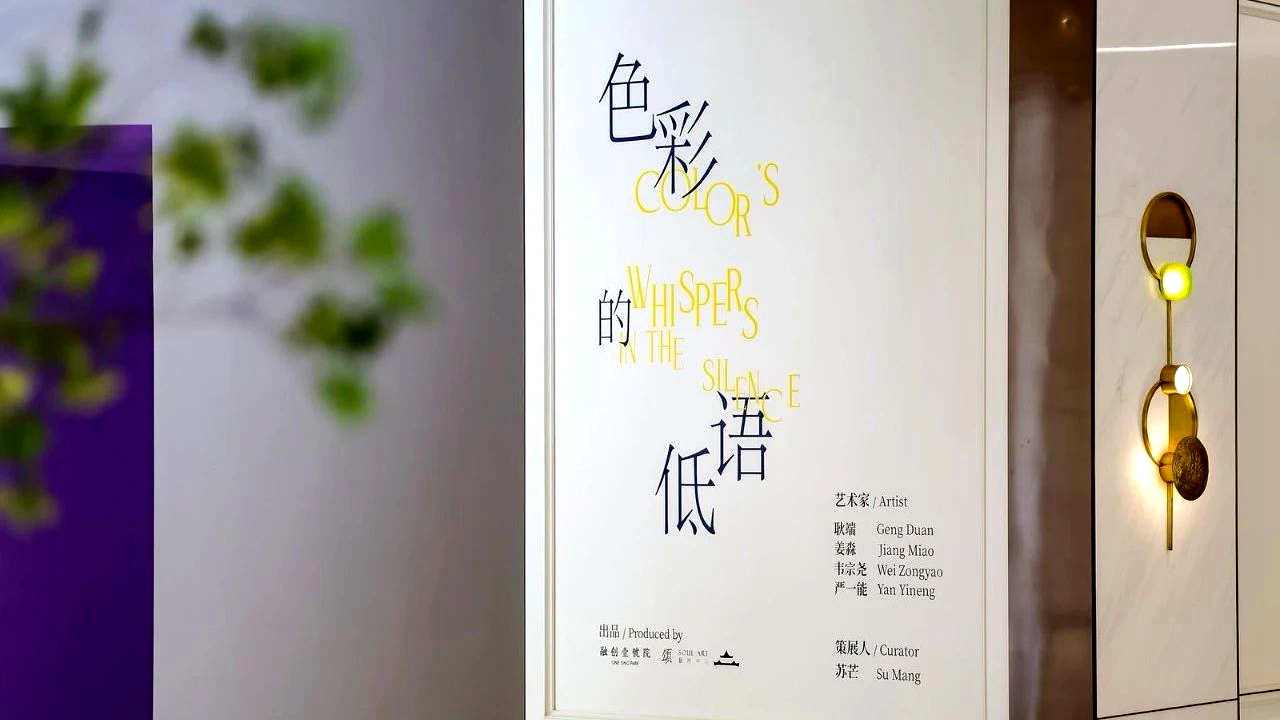 色彩
COLOR'S
的
WHISPERS
IN THE
SILENCE
语
低
艺术家 / Artist
耿端 Geng Duan
姜淼 Jiang Miao
韦宗尧 Wei Zongyao
严一能 Yan Yineng
出品 / Produced by
融创壹號院
ONE SINO PARK
颂
SOUL ART
策展人 / Curator
苏芒 Su Mang